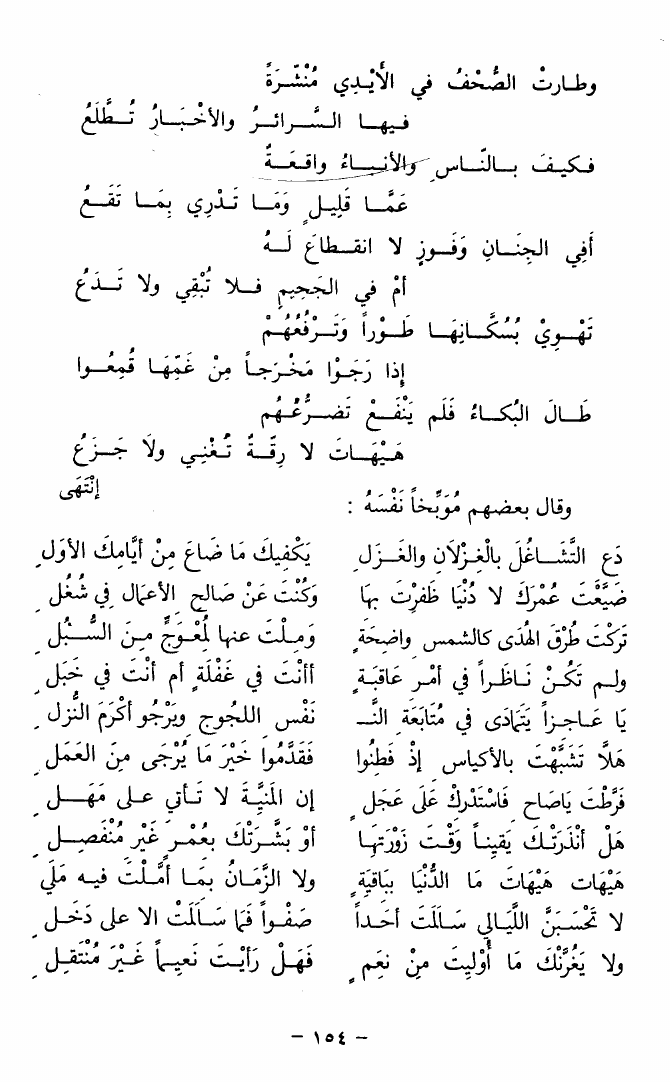 وطارتْ الصُّحْفُ في الأَيْدِي مُنْشَّرَةً
فيها السَّرائرُ والأخْبَارُ تُطَّلَعُ
فكيفَ بالنَّاسِ والأنباءُ واقعَةٌ
عَمَّا قَلِيلٍ وَمَا تَدْرِي بِمَا تَقَعُ
أفِي الجِنَانِ وَفَوزٍ لا انقطاعَ لَهُ
أمْ في الجَحِيمِ فلا تُبْقِي ولا تَدَعُ
تَهْوِيْ بُسُكَّانِهَا طَوْراً وَتَرْفَعُهُمْ
إذا رَجَوْا مَخْرَجاً مِنْ غَمِّهَا قُمِعُوا
طَالَ البُكَاءُ فَلَم يَنْفَعْ تَضرُّعُهُم
هَيْهَاتَ لا رِقَّةٌ تُغْنِي ولاَ جَزَعُ
إنْتَهَى
وقال بعضهم مُوَبِّخاً نَفْسَهُ :
دَعِ التَّشَاغُلَ بالْغِزْلاَنِ والغَزَلِ يَكْفِيكَ مَا ضَاعَ مِنْ أيَّامِكَ الأوَلِ
ضَيَّعْتَ عُمْرَكَ لا دُنْيَا ظَفِرْتَ بِهَا وَكُنْتَ عَنْ صَالِحِ الأعمَالِ فِي شُغُلِ
تَرَكْتَ طُرْقَ الهُدَى كالشمسِ واضِحَةٍ وَمِلْتَ عنها لِمُعْوَجٍّ مِنَ السُّبُلِ
ولم تَكُنْ نَاظِراً في أَمْرِ عَاقِبَةٍ أأنْتَ في غَفْلَةٍ أم أنْتَ في خَبَلِ
يَا عَاجِزاً يَتَمَادَى في مُتَابَعَةِ النَّــ نَفْسِ اللجُوجِ ويَرْجُو أكْرَمَ النُّزُلِ
هَلاَّ تَشَبَّهْتَ بالأكْيَاسِ إذْ فَطِنُوا فَقَدَّمُوا خَيْرَ مَا يُرْجَى مِنَ العَمَلِ
فَرَّطْتَ يَاصَاحِ فَاسْتَدْرِكْ عَلَى عَجَلٍ إن المَنِيَّةَ لا تَأتي على مَهَلِ
هَلْ أَنْذَرَتْكَ يَقِيناً وَقْتَ زَوْرَتِهَا أوْ بَشَّرَتْكَ بِعُمْرٍ غَيْرِ مُنْفَصِلِ
هَيْهَاتَ هَيْهَاتَ مَا الدُّنْيَا بِبَاقِيَةٍ ولا الزَّمَانُ بِمَا أمَّلْتَ فيه مَلِي
لا تَحْسَبَنَّ اللَّيَالِي سَالَمَتْ أحَداً صَفْواً فَمَا سَالَمَتْ الا على دَخَلِ
ولا يَغُرَّنْكَ مَا أُوْلِيتَ مِنْ نِعَمٍ فَهَلْ رَأيْتَ نَعِيماً غَيْرَ مُنْتَقِلِ
– ١٥٤ –